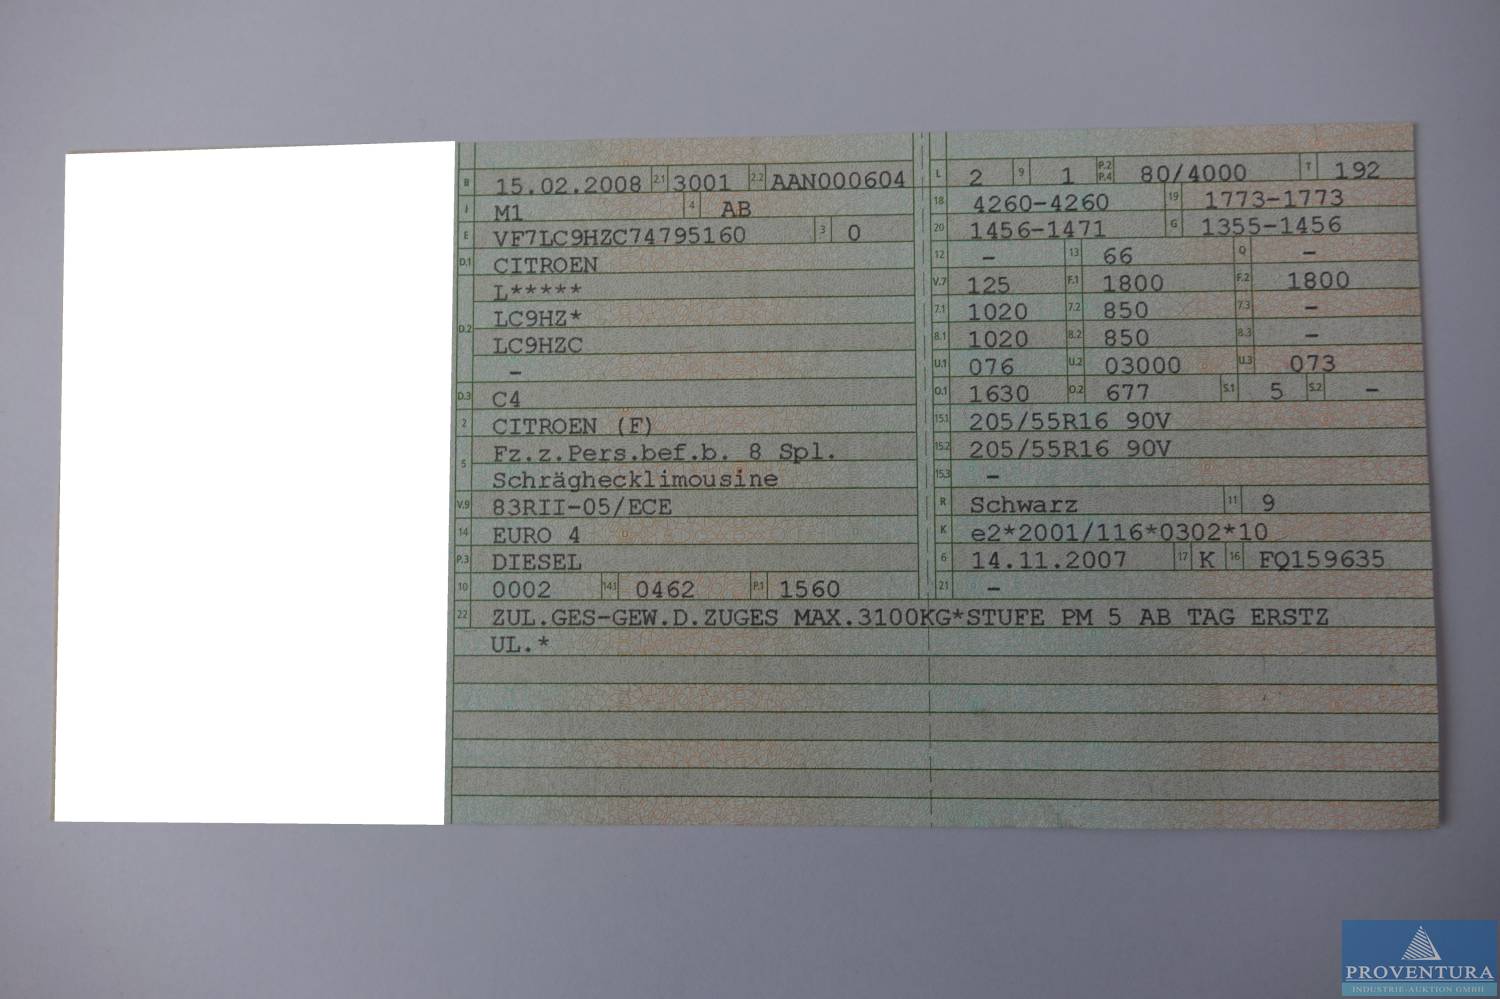 B 15.02.2008 2.1 3001 2.2 AAN000604
J M1 4 AB
E VF7LC9HZC74795160 3 0
D.1 CITROEN
L*****
D.2 LC9HZ*
LC9HZC
–
D.3 C4
2 CITROEN (F)
5 Fz.z.Pers.bef.b. 8 Spl.
Schräghecklimousine
V.9 83RII-05/ECE
14 EURO 4
P.3 DIESEL
10 0002 14.1 0462 P.1 1560
L 2 9 1 P.2 P.4 80/4000 T 192
18 4260-4260 19 1773-1773
20 1456-1471 G 1355-1456
12 – 13 66 Q –
V.7 125 F.1 1800 F.2 1800
7.1 1020 7.2 850 7.3 –
8.1 1020 8.2 850 8.3 –
U.1 076 U.2 03000 U.3 073
O.1 1630 O.2 677 S.1 5 S.2 –
15.1 205/55R16 90V
15.2 205/55R16 90V
15.3 –
R Schwarz 11 9
K e2*2001/116*0302*10
6 14.11.2007 17 K 16 FQ159635
21 –
22 ZUL.GES-GEW.D.ZUGES MAX.3100KG*STUFE PM 5 AB TAG ERSTZ
UL.*
PROVENTURA
INDUSTRIE-AUKTION GMBH